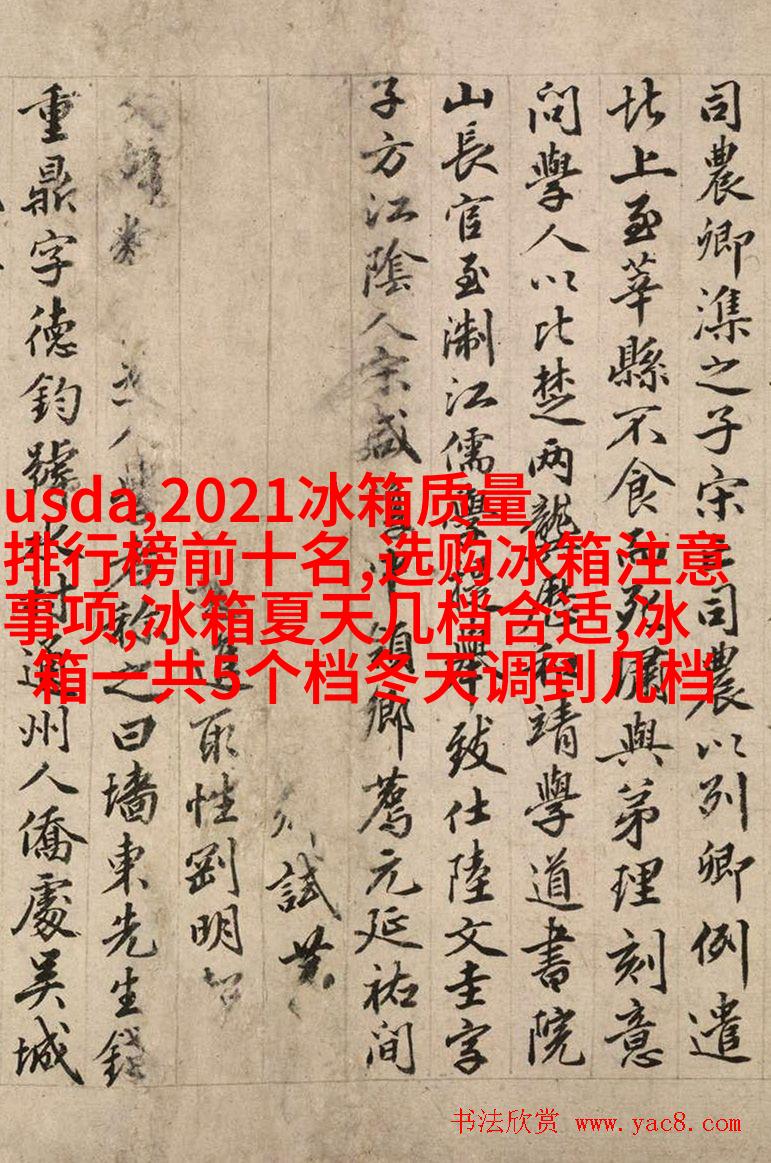 司農卿之子宋亡司農以列卿例遣
北上至莘縣不食而死與弟理刻意
問學人以比楚两龔歷和靖學道書院
山長官至淛江儒學提舉致仕陸文圭字
子方江陰人宋咸淳中領鄉薦元延祐間
試
取性剛明
人稱之曰墻東先生錢
重鼎字德鈞號水村通州人僑處吴城
usda,2021冰箱质量
排行榜前十名,选购冰箱注意
事项,冰箱夏天几档合适,冰
箱一共5个档冬天调到几档
书法欣赏 www.yac8.com